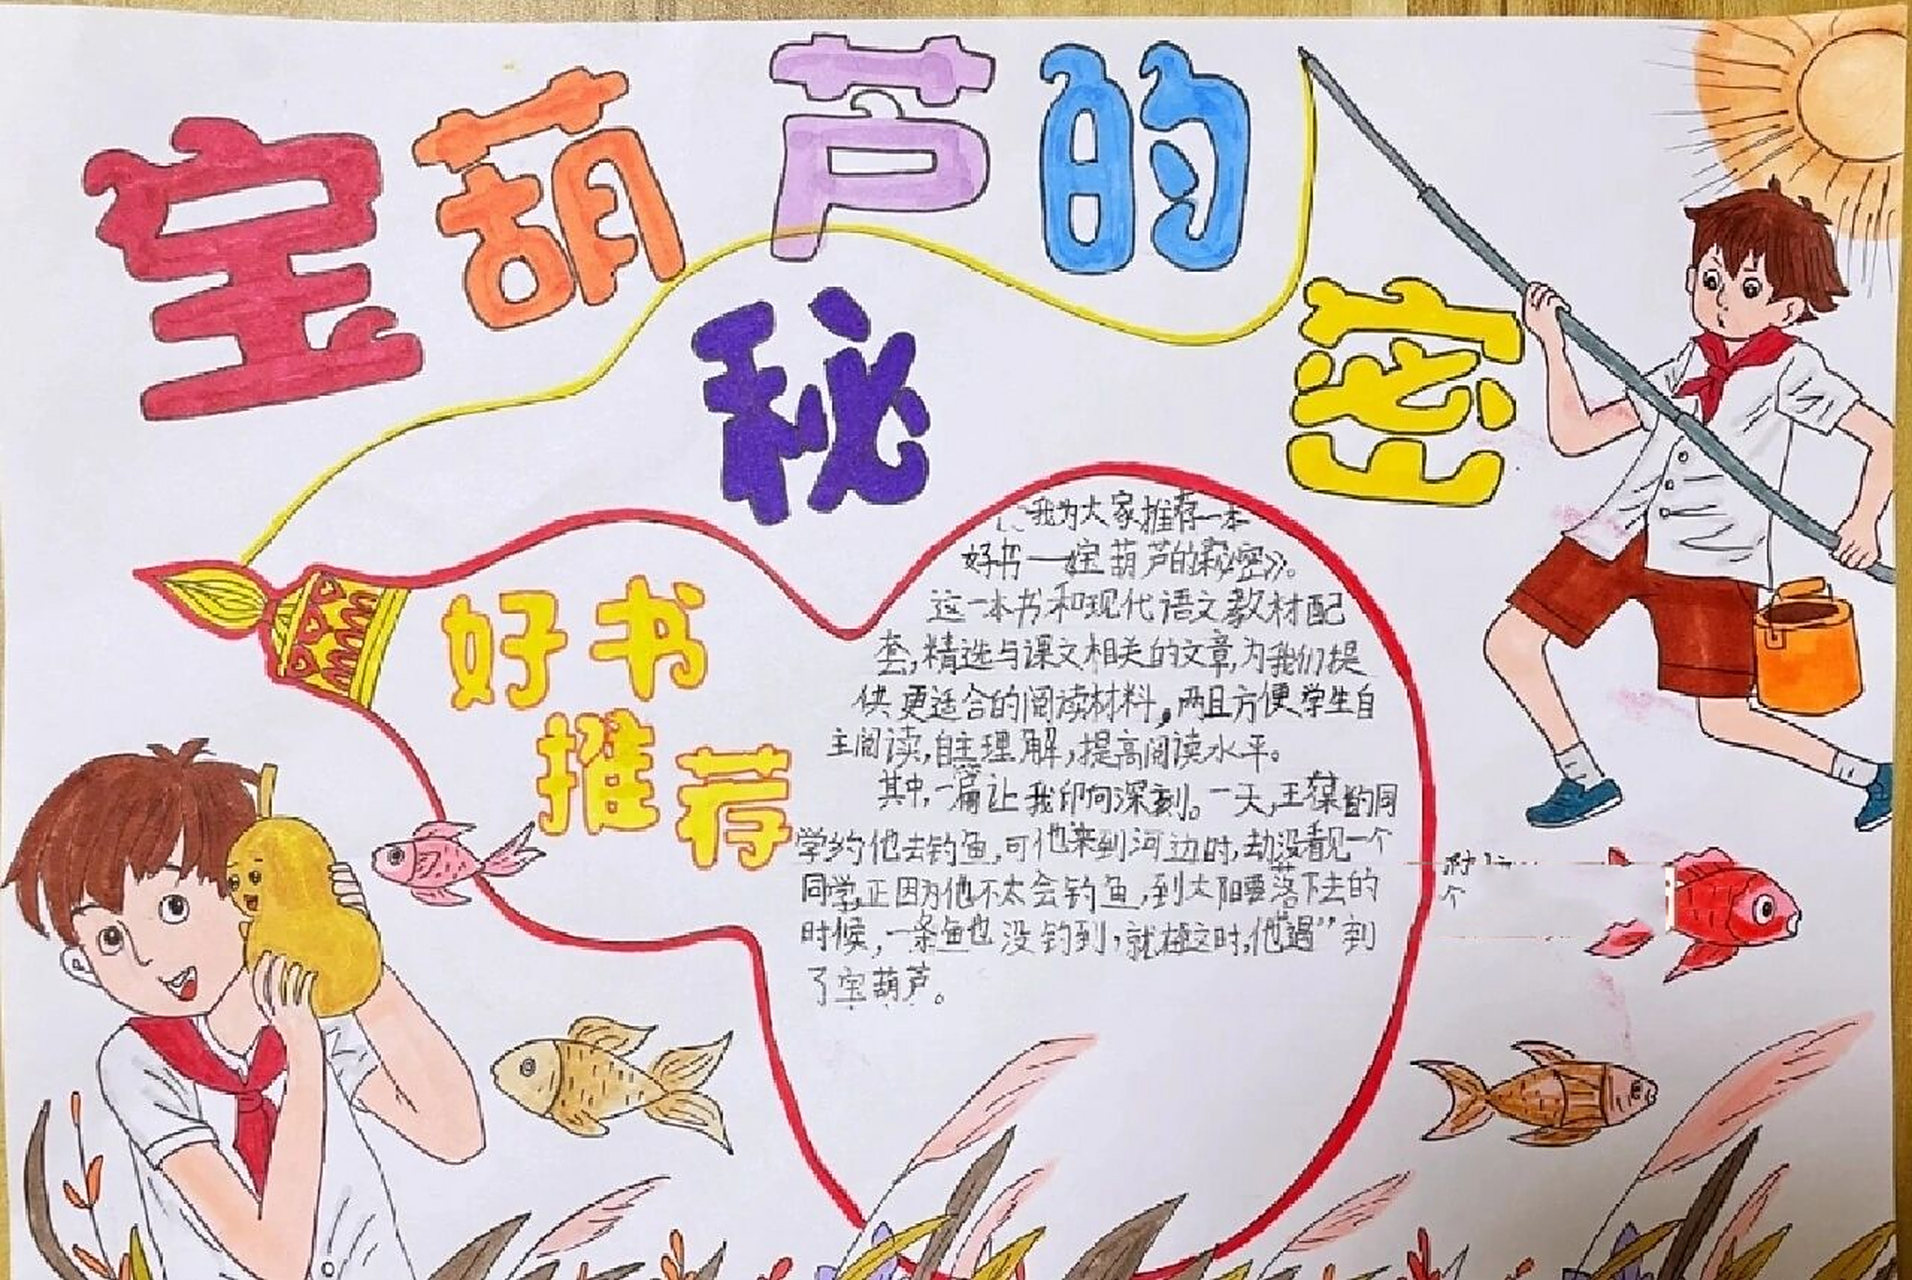 宝葫芦的
秘密
好书
推荐
我为大家推荐一本
好书——《宝葫芦的秘密》。
这一本书和现代语文教材配
套,精选与课文相关的文章,为我们提
供更适合的阅读材料,两且方便学生自
主阅读,自主理解,提高阅读水平。
其中,一篇让我印向深刻。一天,王葆的同
学约他去钓鱼,可他来到河边时,却没看见一个
同学,正因为他不太会钓鱼,到太阳要落下去的
时候,一条鱼也没钓到,就在这时,他遇”到
了宝葫芦。
个